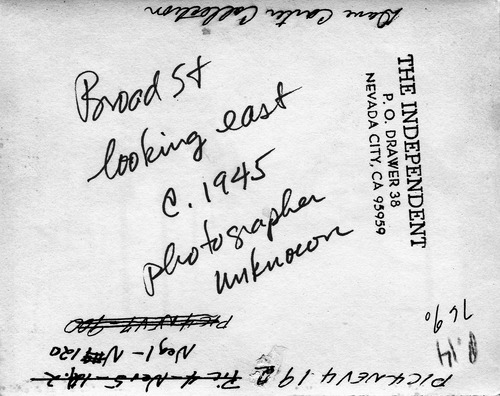 Dave Carter Collection
Broad St
looking east
c. 1945
photographer
unknown
THE INDEPENDENT
P. O. DRAWER 38
NEVADA CITY, CA 95959
76%
Neg 1 - N## 120
PIC4NEV4192